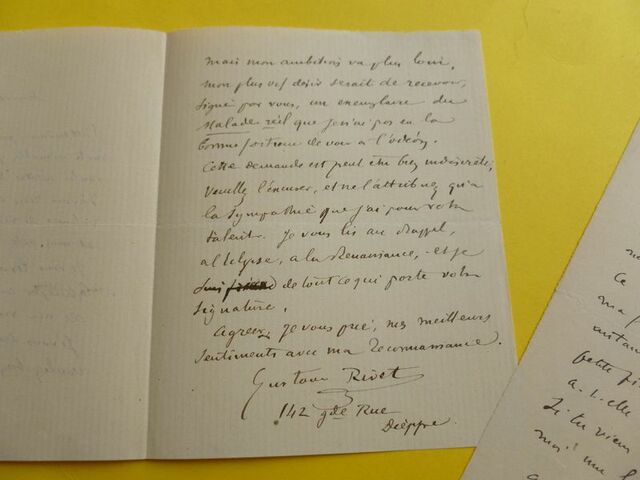 mais mon ambition va plus loin,
mon plus vif désir serait de recevoir,
signé par vous, un exemplaire du
Malade réel que je n'ai pas eu la
bonne fortune de voir à l'odéon.
Cette demande est peut être bien indiscrète;
veuillez l'excuser, et ne l'attribuez qu'à
la sympathie que j'ai pour votre
talent. Je vous lis au Rappel,
à l'Eclipse, à la Renaissance, et je
suis de tout ce qui porte votre
signature.
Agréez, je vous prie, mes meilleurs
sentiments avec ma reconnaissance.
Gustave Rivet
142 gde Rue
Dieppe.
Ce
ma
autant
petite
a-t-elle
Si tu viens
moi une